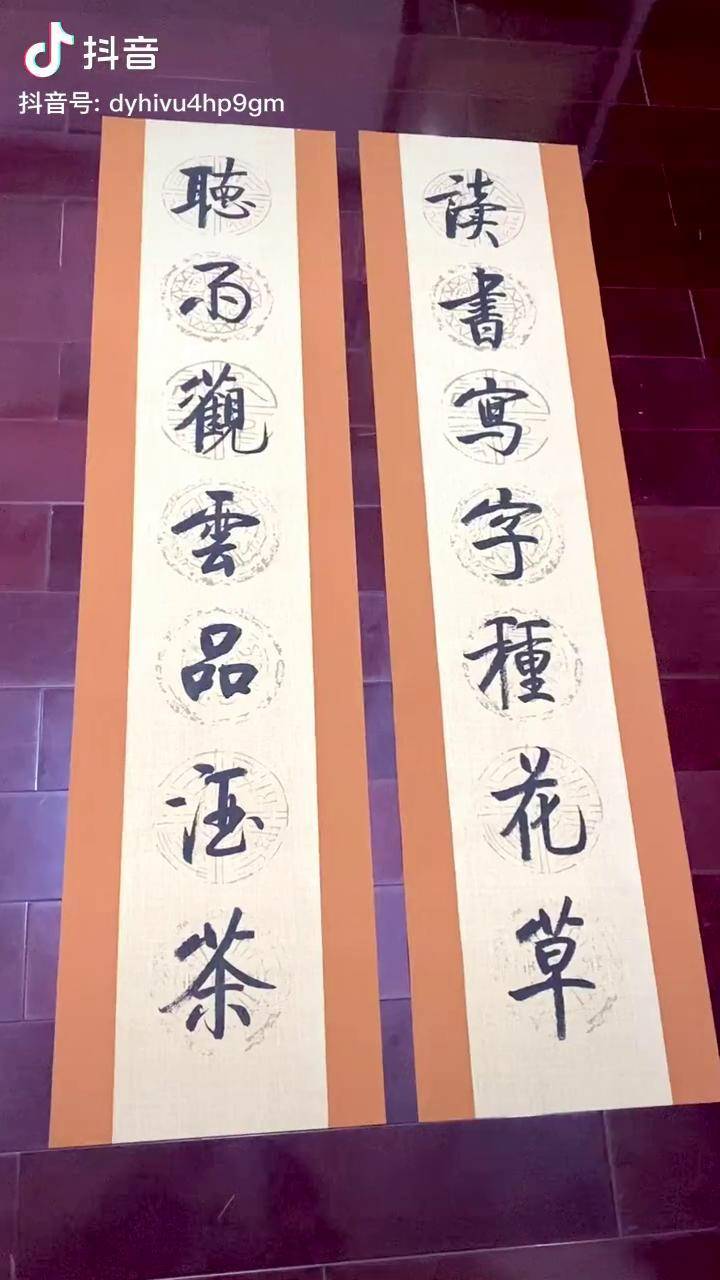 抖音
抖音号: dyhivu4hp9gm
读書寫字種花草
聽雨觀雲品酒茶